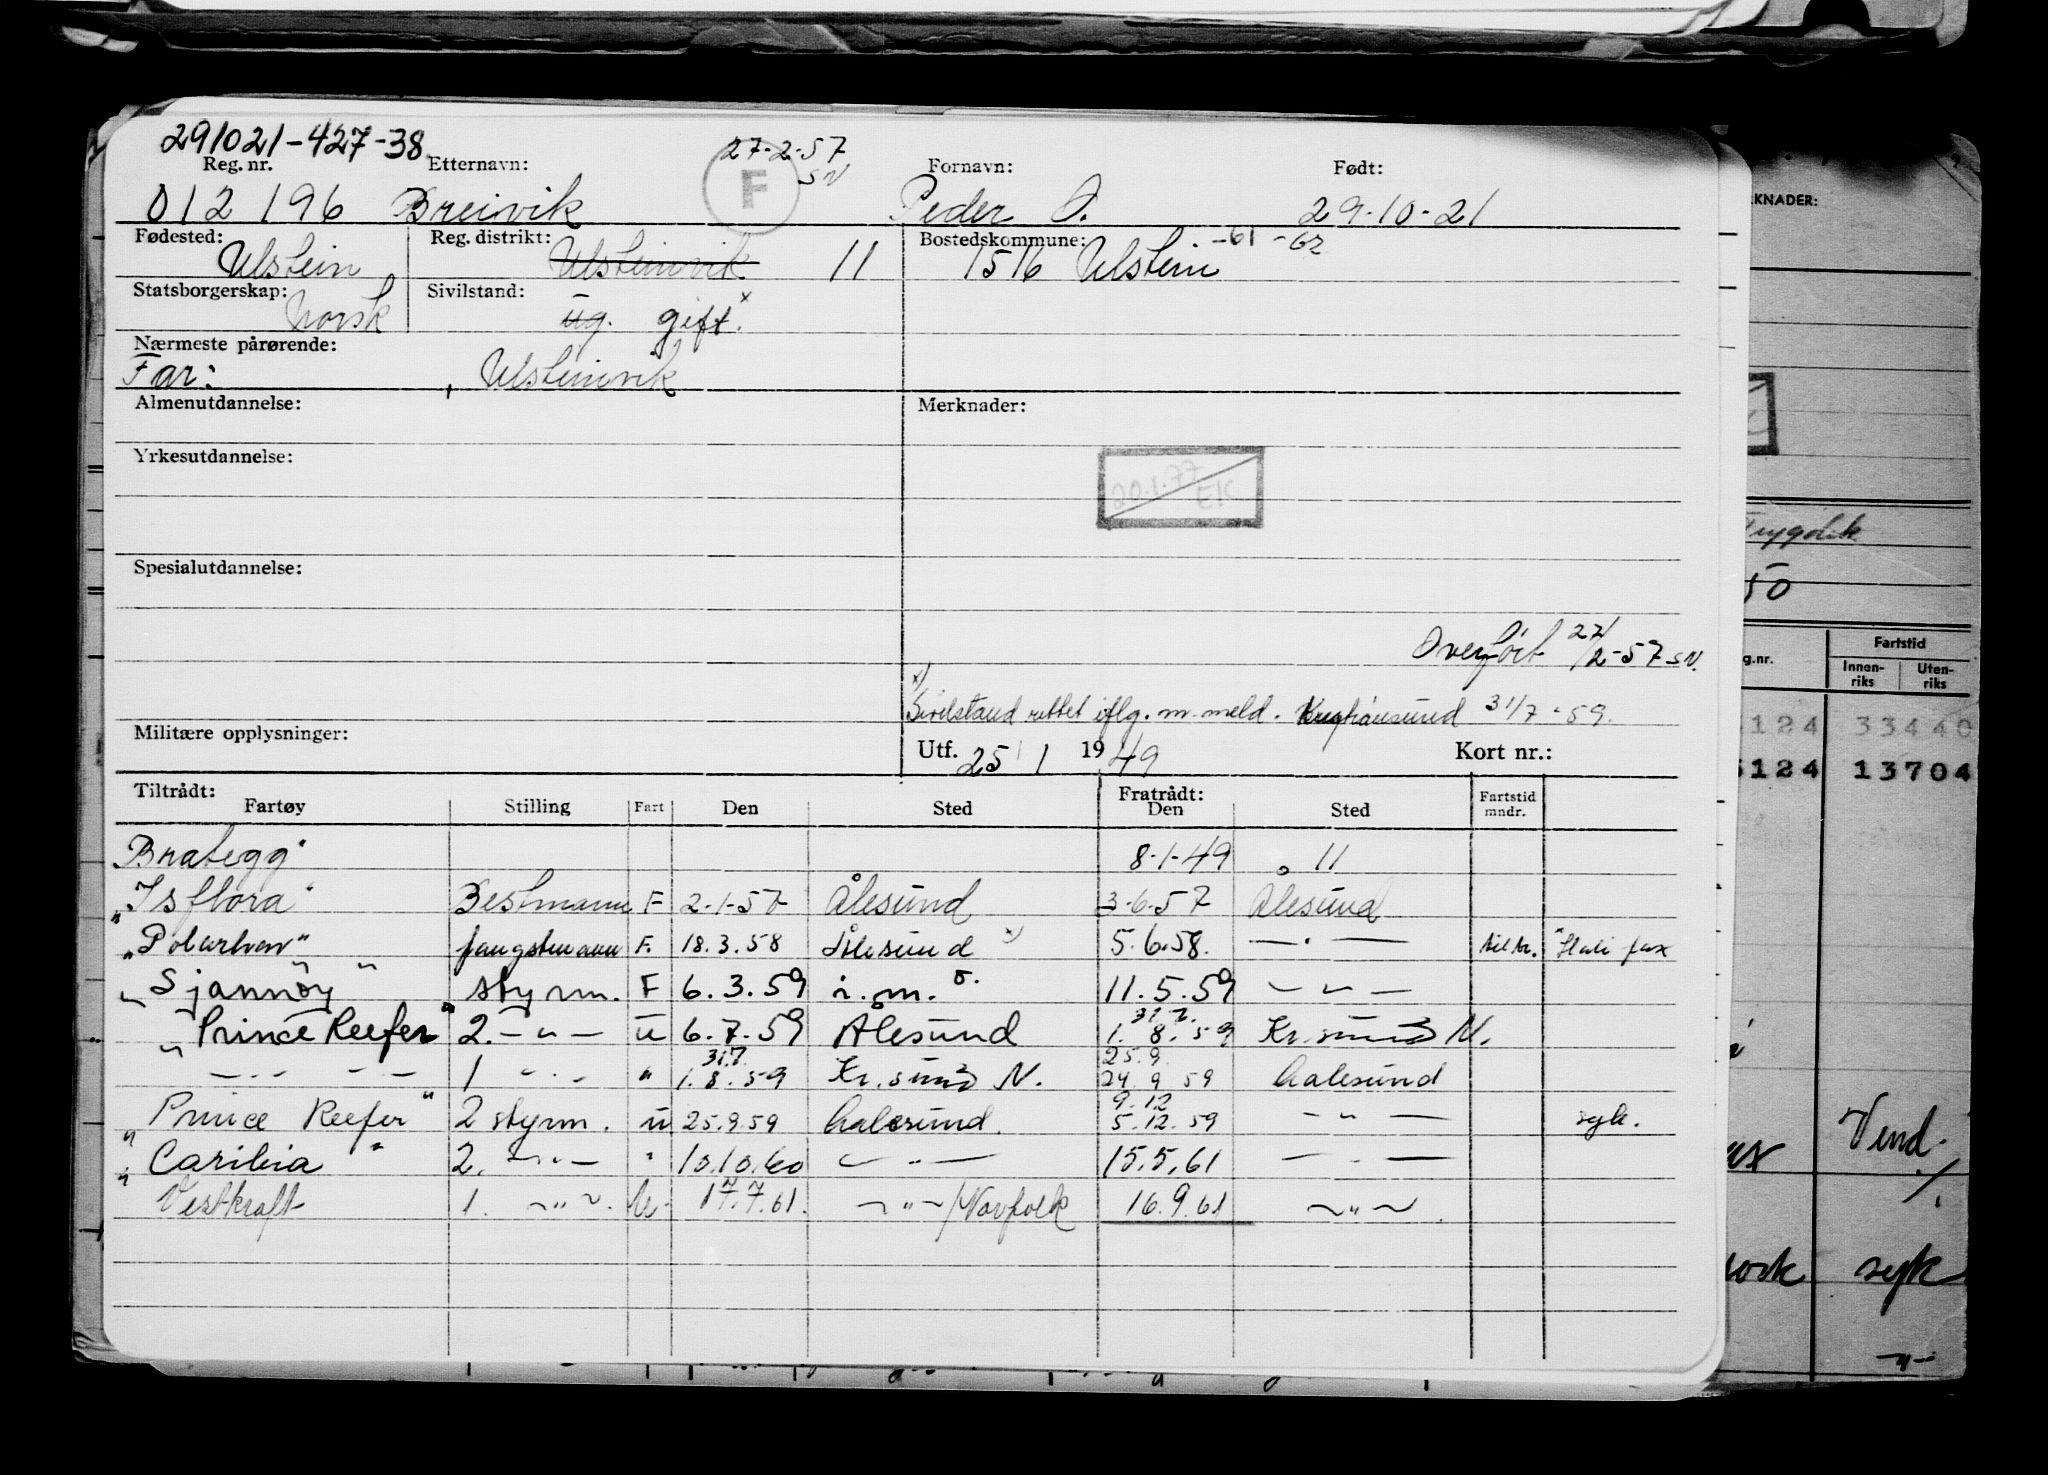 291021-427-38
27-2-57
SN
F
Reg. nr. Etternavn: Fornavn: Født:
012 196 Breivik Peder O. 29-10-21
Fødested: Reg. distrikt: Bostedskommune:
Ulstein Ulsteinvik 11 1516 Ulstein -61 -62
Statsborgerskap: Sivilstand:
Norsk ug. gift. x
Nærmeste pårørende:
Far: , Ulsteinvik
Almenutdannelse: Merknader:
Yrkesutdannelse:
20.1.77 EK
Spesialutdannelse:
Overført 27/2-57 SN.
x) Sivilstand rettet iflg. m. meld. 31/7-59.
Militære opplysninger: Utf. 25/1 1949 Kort nr.:
Tiltrådt: Fratrådt:
Fartøy Stilling Fart Den Sted Den Sted Fartstid mndr.
Brategg" 8-1-49 11
"Isflora" Bestmann F 2-1-57 Ålesund 3-6-57 Ålesund
"Polarhav" fangstmann F. 18.3.58 Ålesund 5.6.58. — . — tiltr.
"Sjannøy" styrm. F 6.3.59 11.5.59 — " —
"Prince Reefer" 2. — " — u 6.7.59 Ålesund 31.7. 1.8.59 Kr.sund N.
— " — — " — 1 — " — " 31.7. 1.8.59 Kr.sund N. 25.9. 24.9.59 Aalesund
"Prince Reefer" 2 styrm. u 25.9.59 Aalesund. 9.12 5.12.59 — " — syk.
"Caribia" 2. — " — " 10.10.60 — " — 15.5.61 — " —
Vestkraft 1. — " —. U. 17.7.61. — " —/Norfolk 16.9.61 — " —
KNADER:
50
g.nr. Fartstid
Innen-riks Uten-riks
124 33440
5124 13704
Vend.
syk